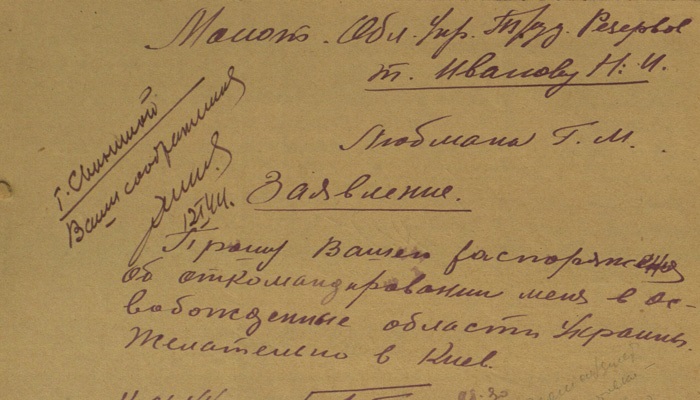 Молот. Обл. Упр. Труд. Резервов
т. Иванову Н. И.
Любмана Г. М.
Заявление.
Ваши соображения
12/I 44.
Прошу Вашего распоряжения
об откомандировании меня в ос-
вобожденные области Украины.
Желательно в Киев.